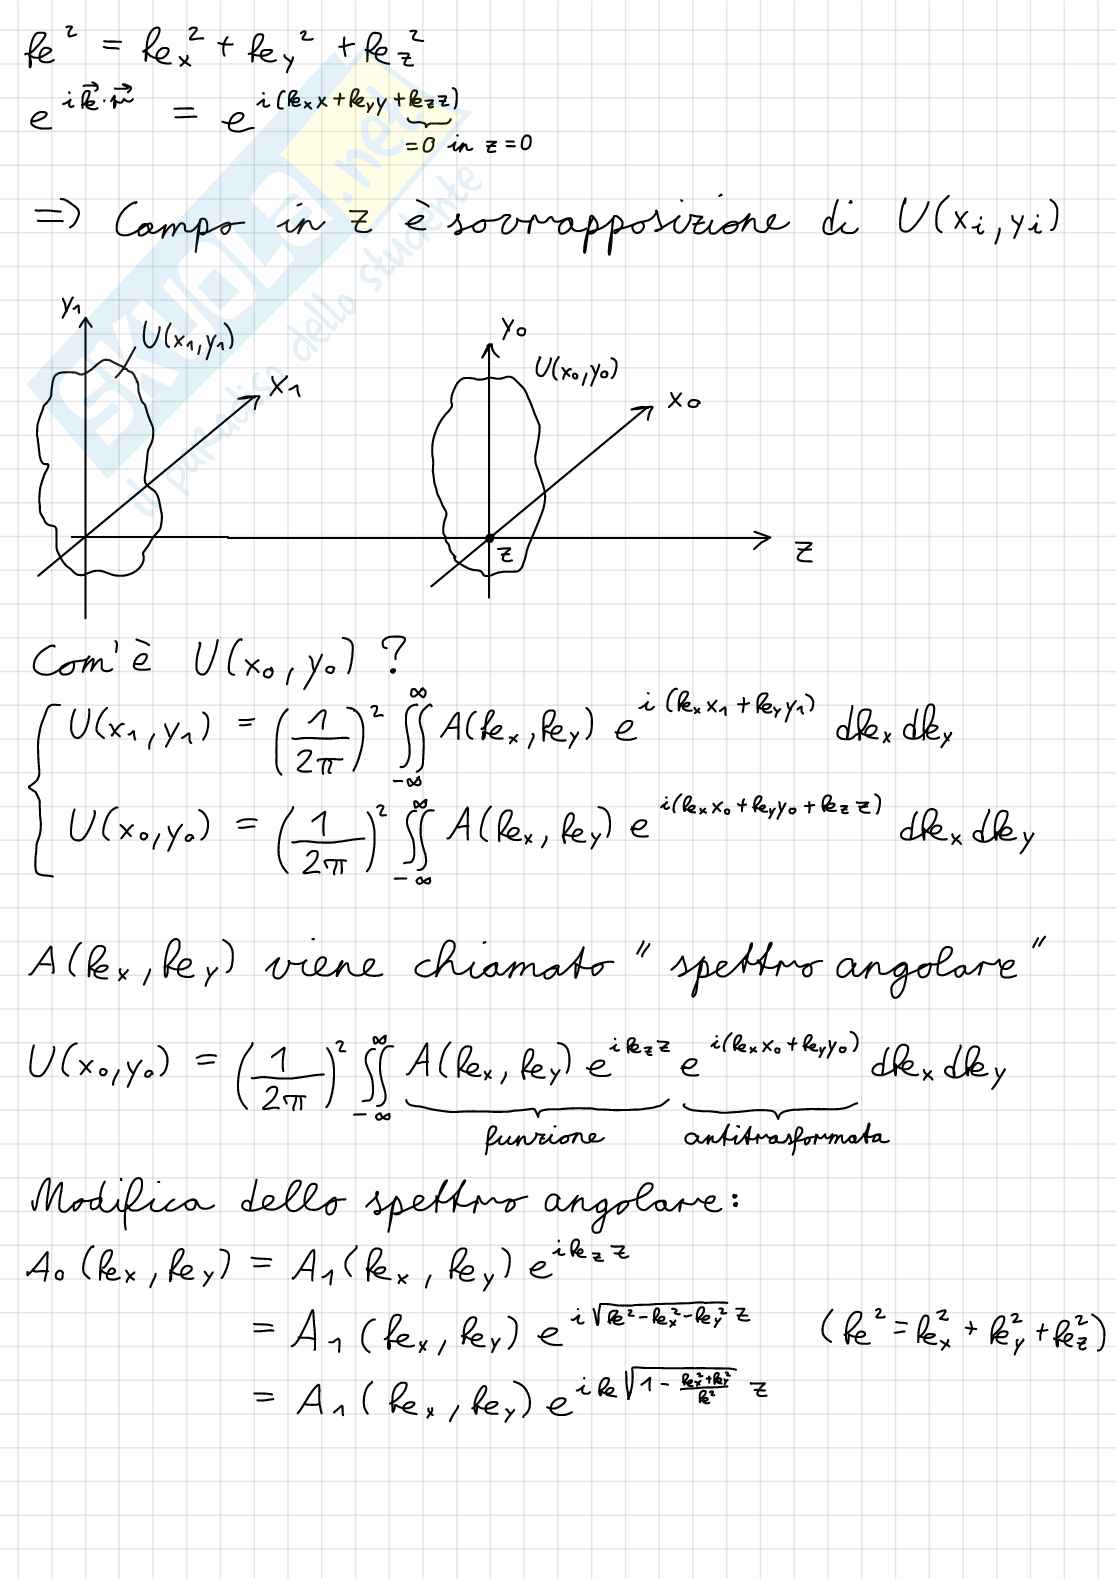 k² = kx² + ky² + kz²
e^{i k⃗·r⃗} = e^{i(kx x + ky y + kz z)}
=0 in z=0
=> Campo in z è sovrapposizione di U(xi, yi)
y1
U(x1,y1)
x1
y0
U(x0,y0)
x0
z
z
Com'è U(x0, y0) ?
U(x1, y1) = (1/2π)² ∬_{-∞}^{∞} A(kx, ky) e^{i(kx x1 + ky y1)} dkx dky
U(x0, y0) = (1/2π)² ∬_{-∞}^{∞} A(kx, ky) e^{i(kx x0 + ky y0 + kz z)} dkx dky
A(kx, ky) viene chiamato "spettro angolare"
U(x0, y0) = (1/2π)² ∬_{-∞}^{∞} A(kx, ky) e^{i kz z} e^{i(kx x0 + ky y0)} dkx dky
funzione antitrasformata
Modifica dello spettro angolare:
A0 (kx, ky) = A1 (kx, ky) e^{i kz z}
= A1 (kx, ky) e^{i √(k² - kx² - ky²) z} (k² = kx² + ky² + kz²)
= A1 (kx, ky) e^{i k √(1 - (kx² + ky²)/k²) z}
SKUOLA.net
il paradiso dello studente